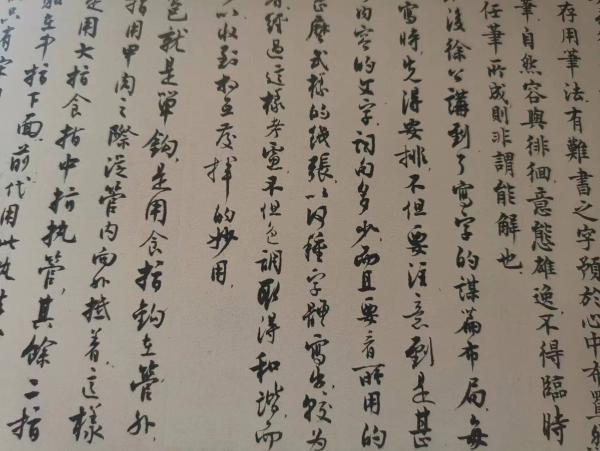 存用筆法有難書之字預於心中布置
筆自然容與徘徊意態雄逸不得臨時
任筆所成則非謂能解也
後徐公講到了寫字的謀篇布局每
寫時先得安排不但要注意到是甚
內容的文字詞句多少而且要看所用的
甚麼式樣的紙張以何種字體寫出較為
經過這樣考慮不但色調取得和諧而
以收到相互發揮的妙用
就是單鉤是用食指鉤在管外
指用甲肉之際從管內向外抵着這樣
是用大指食指中指執管其餘二指
在中指下面前代用此執